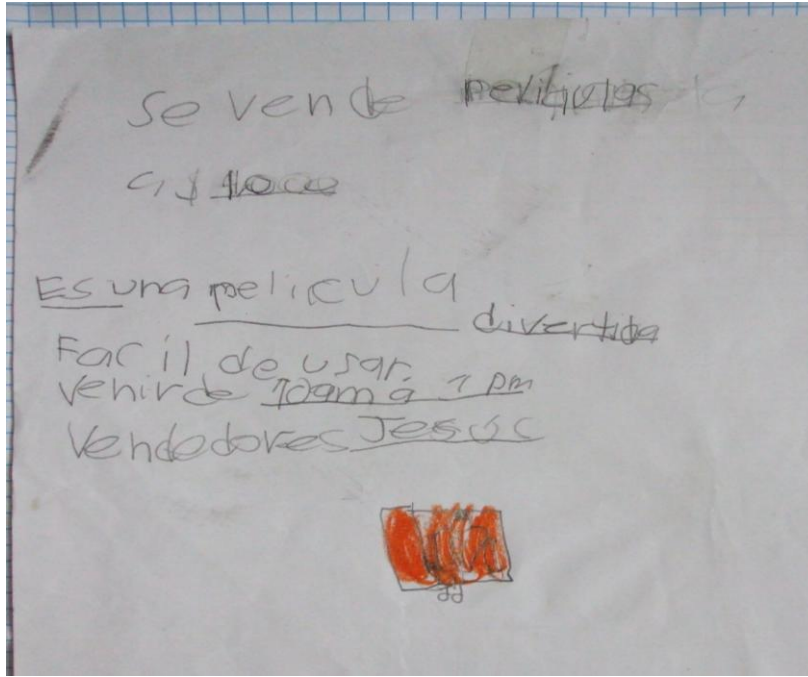 Se vende
a $ 1000
Es una pelicula
divertida
Facil de usar.
Venir de 10am a 1 pm
Vendedores Jesús